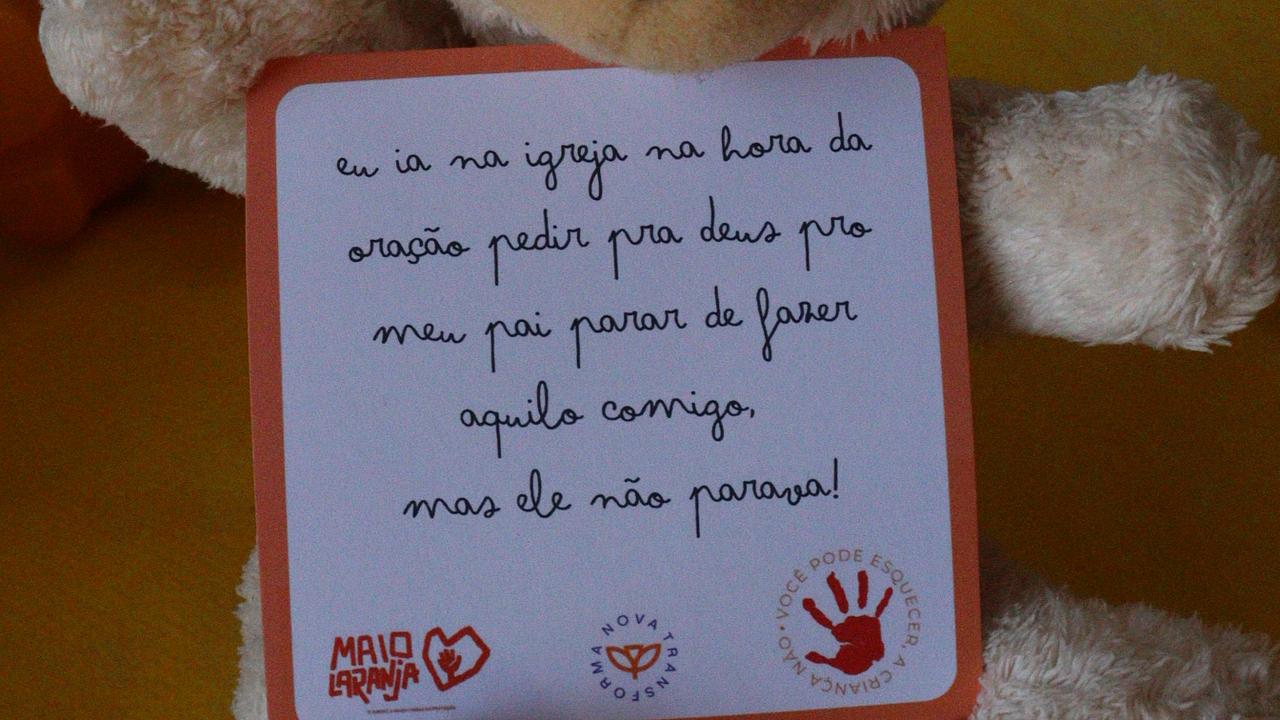 eu ia na igreja na hora da
oração pedir pra deus pro
meu pai parar de fazer
aquilo comigo,
mas ele não parava!
MAIO
LARANJA
NOVA TRANSFORMA
VOCÊ PODE ESQUECER, A CRIANÇA NÃO •